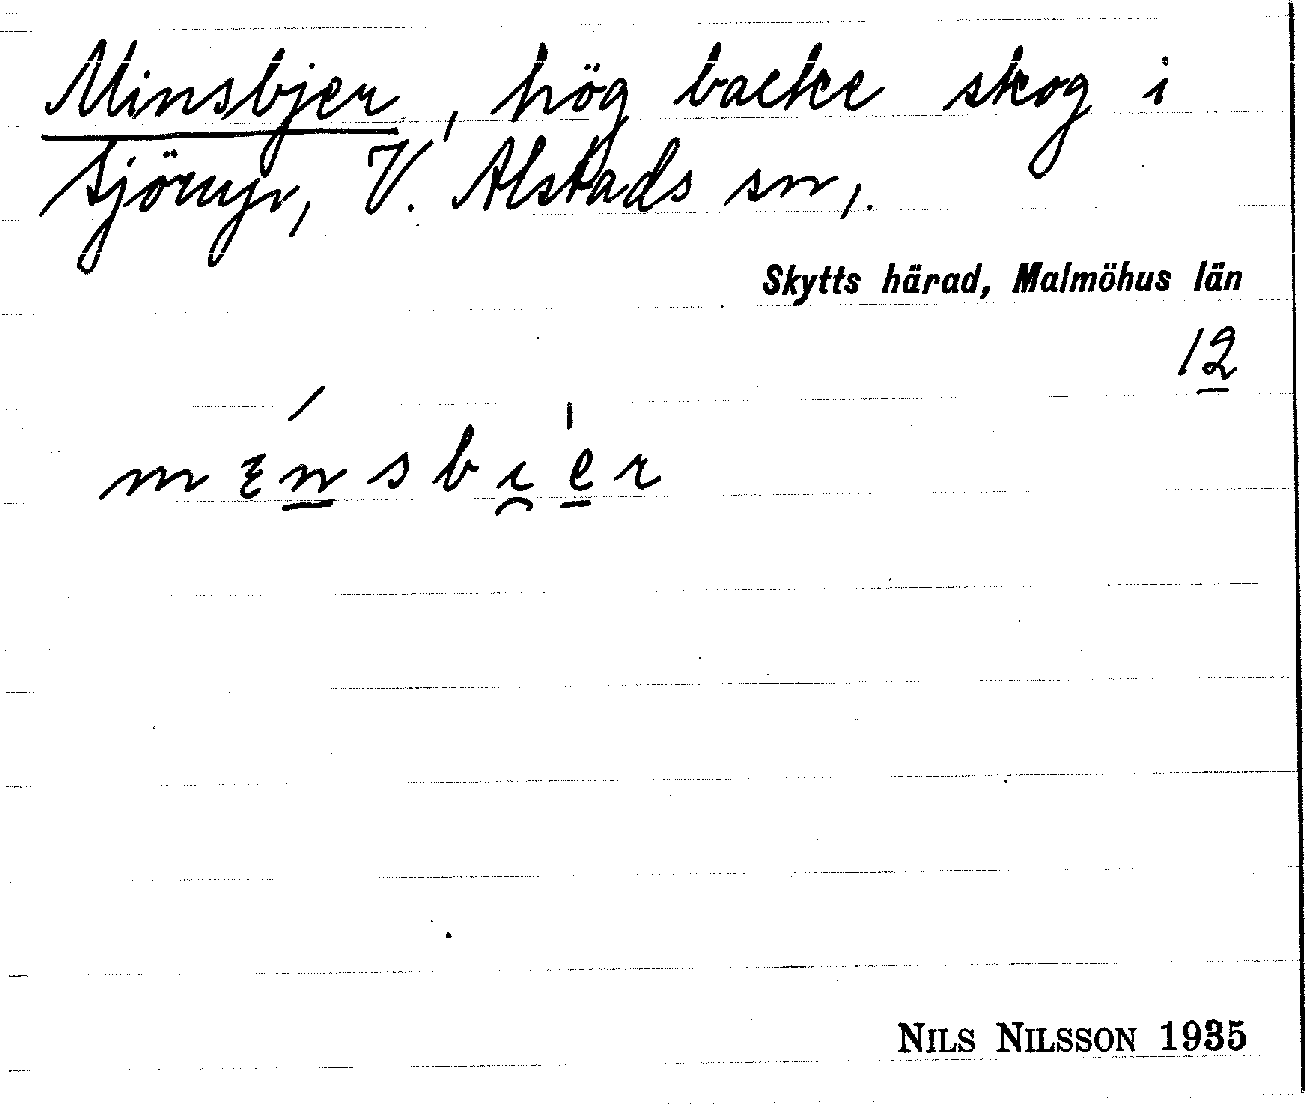 Minsbjer, hög backe skog i
Sjöruyr, V. Alstads sn,.
Skytts härad, Malmöhus län
12
mɛnsbi̯er
NILS NILSSON 1935